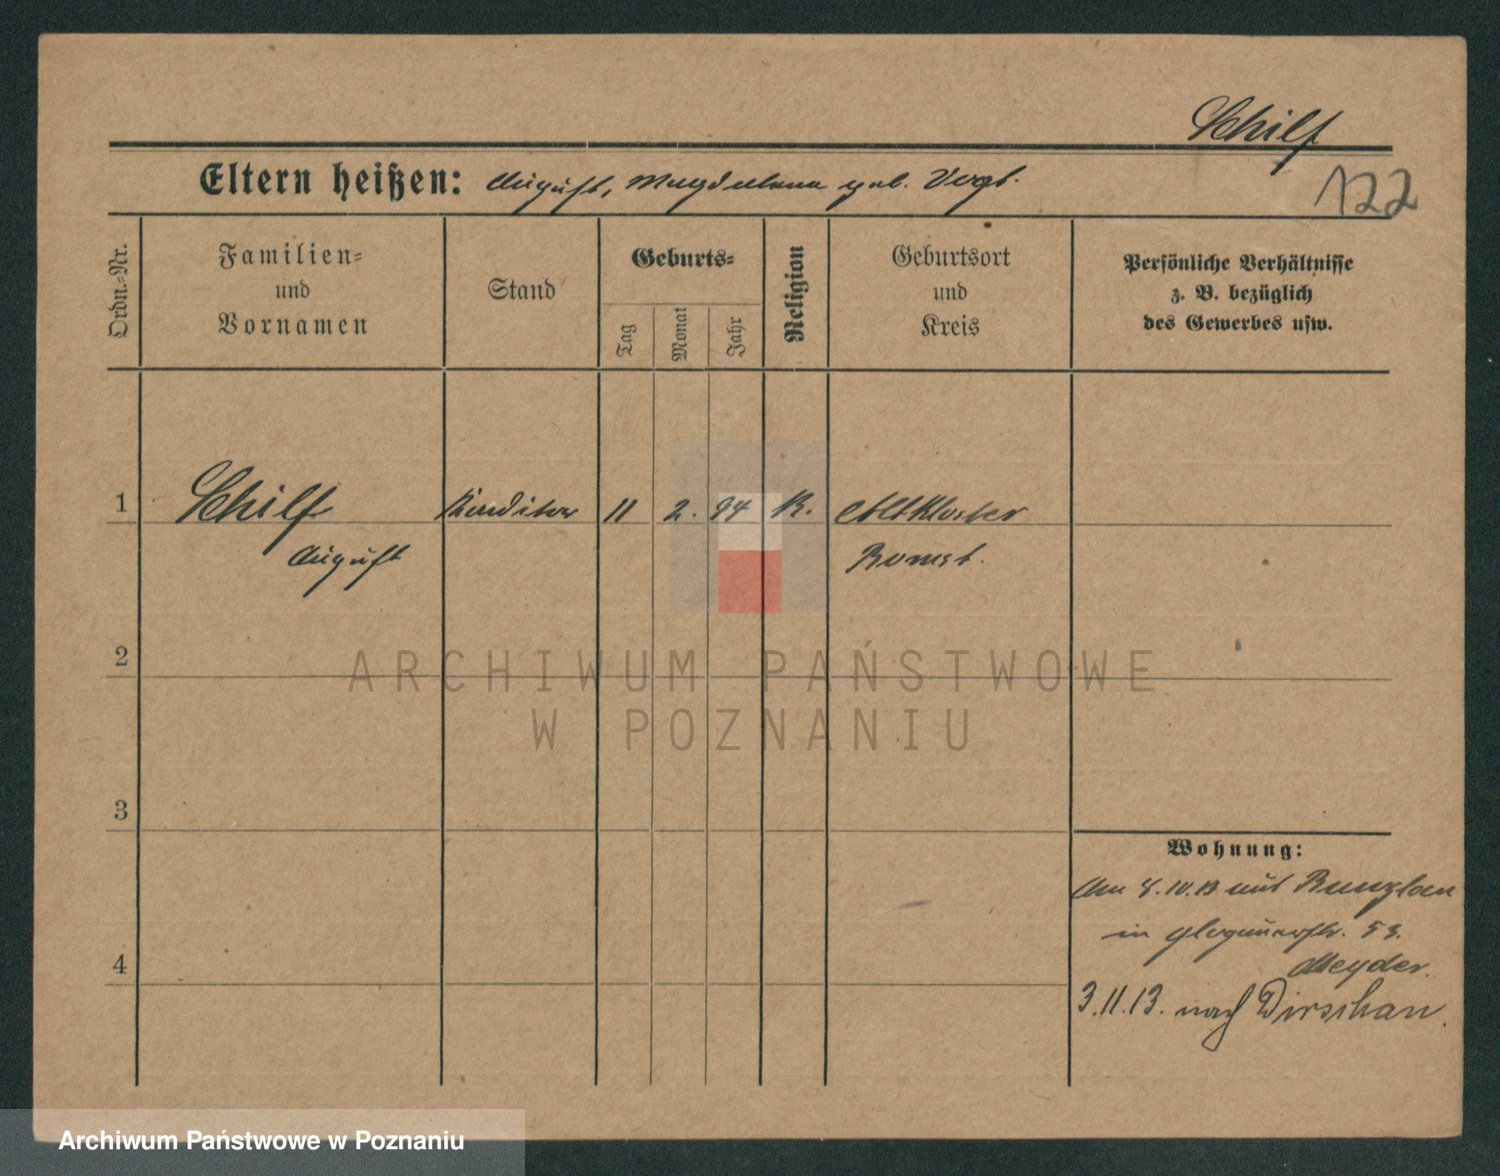 Schilf
Eltern heißen: August, Magdalena geb. Vogt.
122
Ordn.=Nr.
Familien=
und
Vornamen
Stand
Geburts=
Tag
Monat
Jahr
Religion
Geburtsort
und
Kreis
Persönliche Verhältnisse
z. B. bezüglich
des Gewerbes usw.
1
Schilf Konditor 11 2. 94 K. Altkloster
August Bomst.
2
ARCHIWUM PAŃSTWOWE
W POZNANIU
3
Wohnung:
Am 8.10.13 aus Bunzlau
in Glogauerstr. 53.
4
3.11.13. nach Dirschau.
Archiwum Państwowe w Poznaniu